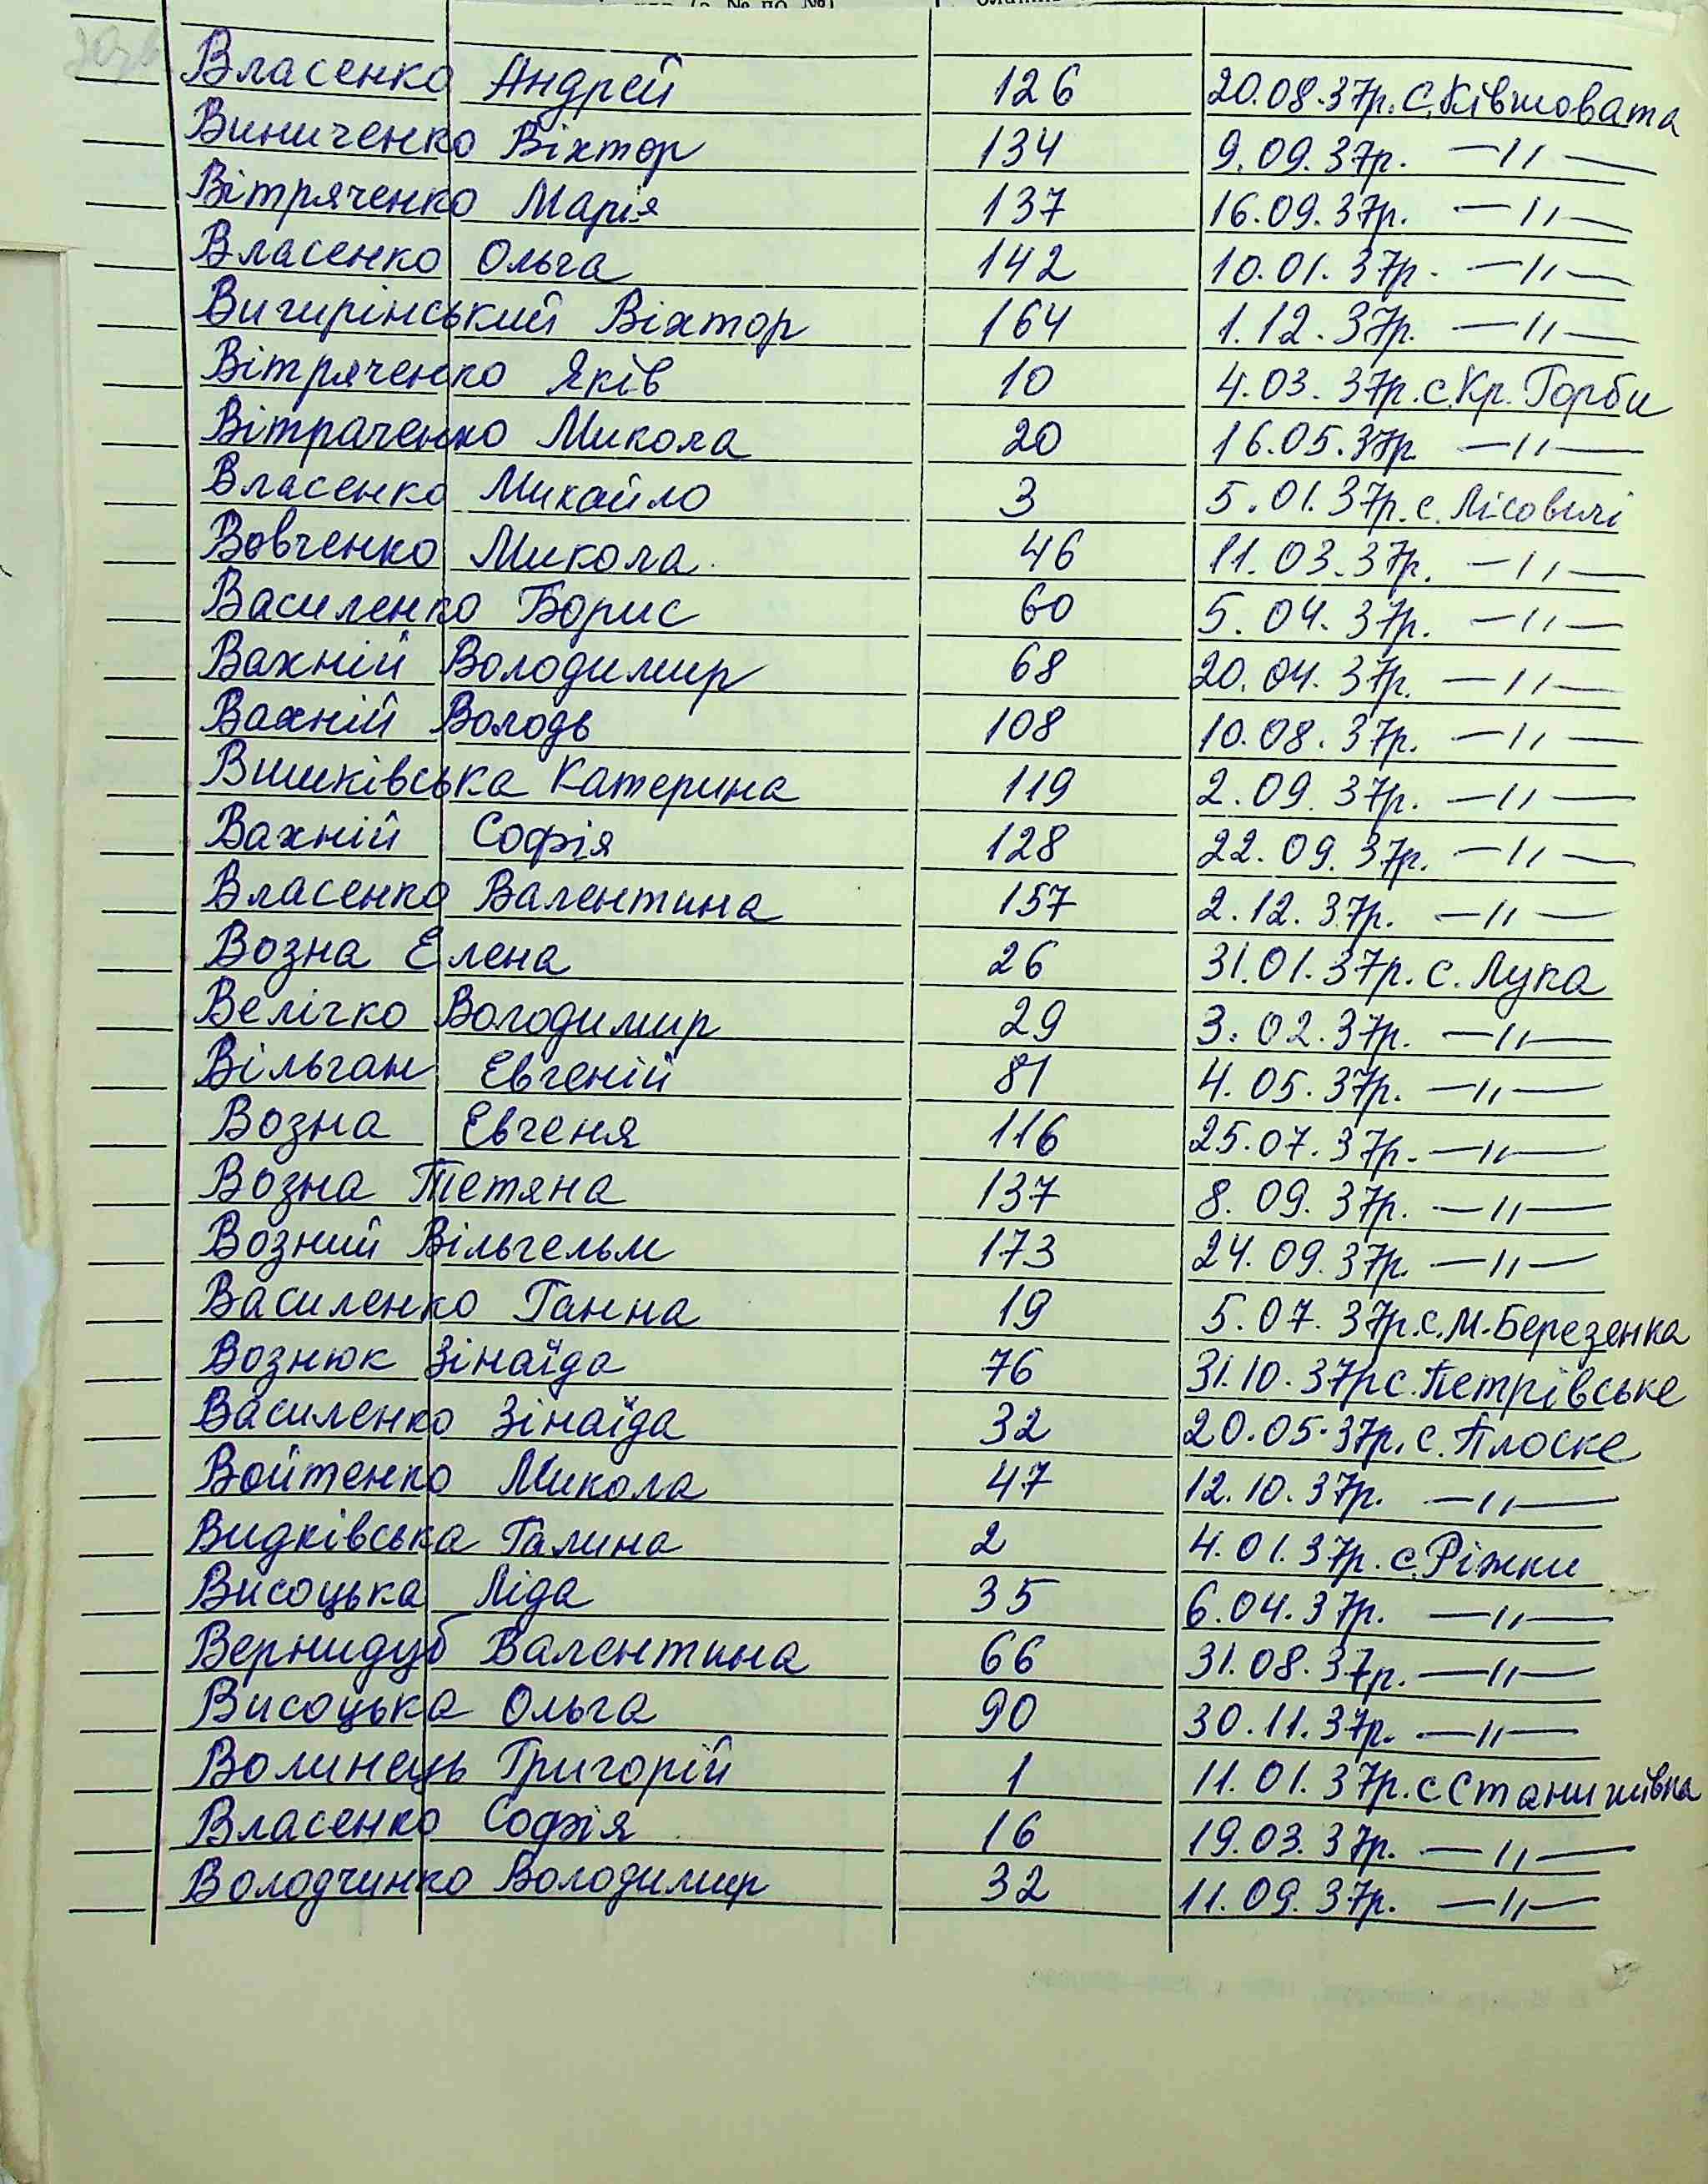 Власенко Андрей 126 20.08.37р. с. Ківшовата
Виниченко Віктор 134 9.09.37р. —〃—
Вітряченко Марія 137 16.09.37р. —〃—
Власенко Ольга 142 10.01.37р. —〃—
Вигирінський Віктор 164 1.12.37р. —〃—
Вітряченко Яків 10 4.03.37р. с. Кр. Горби
Вітраченко Микола 20 16.05.37р. —〃—
Власенко Михайло 3 5.01.37р. с. Лісовичі
Вовченко Микола 46 11.03.37р. —〃—
Василенко Борис 60 5.04.37р. —〃—
Вахній Володимир 68 20.04.37р. —〃—
Вахній Володь 108 10.08.37р. —〃—
Вишківська Катерина 119 2.09.37р. —〃—
Вахній Софія 128 22.09.37р. —〃—
Власенко Валентина 157 2.12.37р. —〃—
Возна Елена 26 31.01.37р. с. Лука
Велічко Володимир 29 3.02.37р. —〃—
Вільган Евгеній 81 4.05.37р. —〃—
Возна Евгеня 116 25.07.37р. —〃—
Возна Тетяна 137 8.09.37р. —〃—
Возний Вільгельм 173 24.09.37р. —〃—
Василенко Ганна 19 5.07.37р. с. М-Березенка
Вознюк Зінаїда 76 31.10.37р с. Петрівське
Василенко Зінаїда 32 20.05.37р. с. Плоске
Войтенко Микола 47 12.10.37р. —〃—
Видківська Галина 2 4.01.37р. с. Ріжки
Висоцька Ліда 35 6.04.37р. —〃—
Вернидуб Валентина 66 31.08.37р. —〃—
Висоцька Ольга 90 30.11.37р. —〃—
Волинець Григорій 1 11.01.37р. с Станишівка
Власенко Софія 16 19.03.37р. —〃—
Володчинко Володимир 32 11.09.37р. —〃—